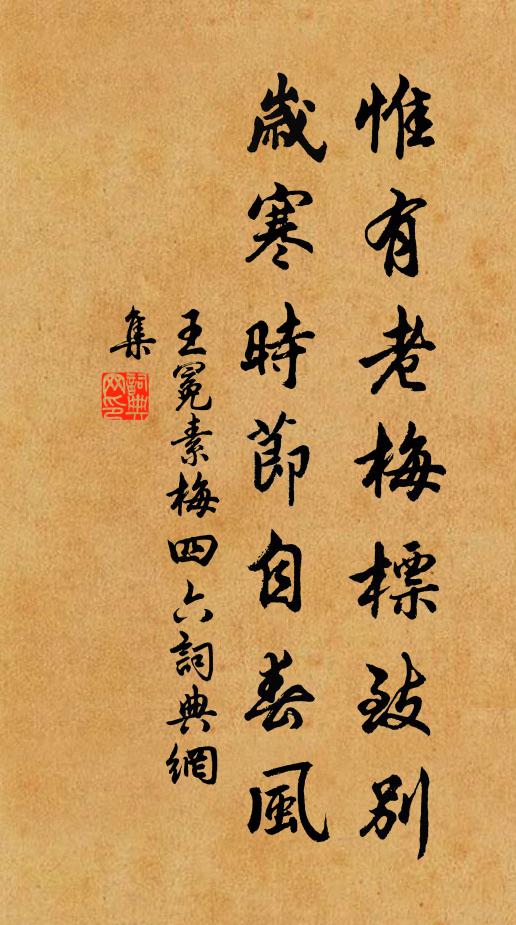 惟有老梅標致別
歲寒時節自春風
王冕素梅四六詞典網
集
詞典網印